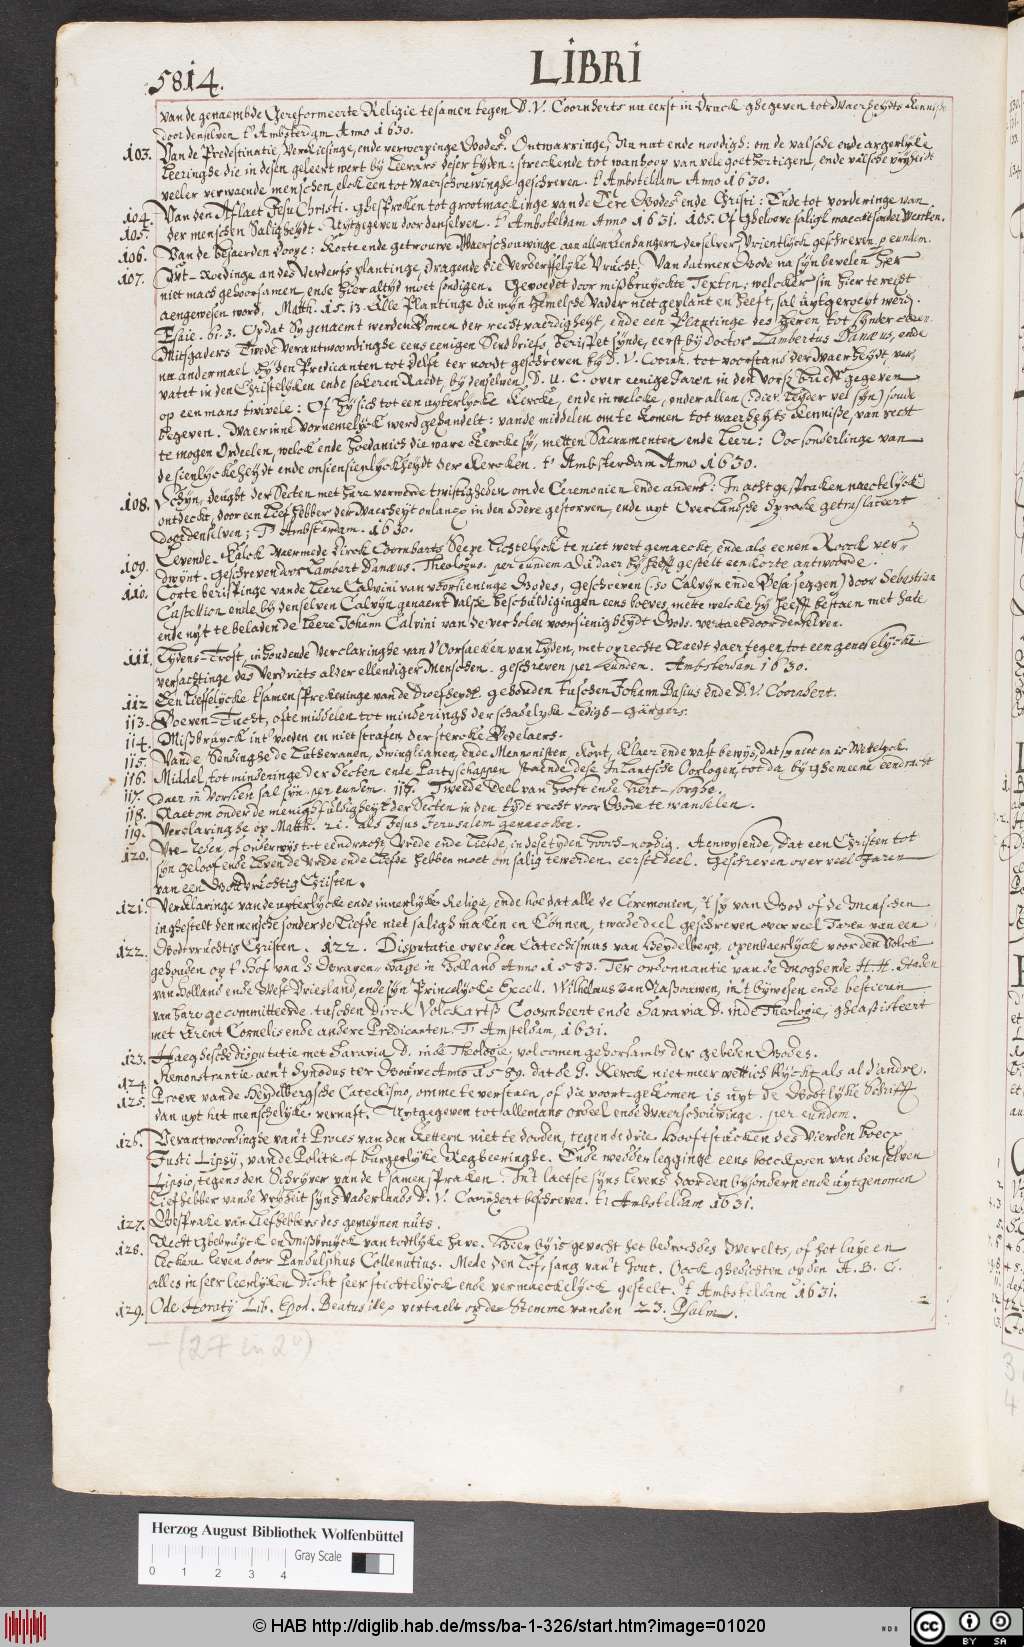 5814.
LIBRI
van de genaembde Gereformeerte Religie tesamen tegen D. V. Coornherts nu eerst in Druck ghegeven tot Waerheydts kennisse
door denselven t' Ambsterdam Anno 1630.
103. Van de Predestinatie, Verkiesinge, ende verwerpinge Godes. Ontwarringe, Nu nut ende noodigh: om de valsche ende argerlyke
leeringhe die in desen geleert wert by Leeraers deser tyden: streckende tot wanhoop van vele goethertigen, ende valsche vryheidt
veeler verwaende menschen elck een tot waerschouwinghe geschreven. t' Ambsteldam Anno 1630.
104. Van den Aflaet Jesu Christi. ghesproken tot grootmackinge van de Eere Godes ende Christi: Ende tot vorderinge van
105. der menschen Saligheydt. Uytgegeven door denselven. t' Ambsteldam Anno 1631. 105. Of Gheloove saligh maecke sonder Wercken.
106. Van de besaerden Doope: Korte ende getrouwe Waerschouwinge aen allen Aenhangern derselver, Vrientlyck geschreven. p eundem.
107. Uyt-Roedinge an des Verderfs plantinge, dragende die Verderffelyke Vrucht. Van datmen Gode na syn bevelen hier
niet mach gehoorsamen, ende hier altyd moet sondigen. Gevoedet door mißbruyckte Texten; welcker sin hierte recht
aengewesen word. Matth. 15. 13. Alle Plantinge die myn hemelsche Vader niet geplant en heeft, sal uytgeroeyt werd.
Esaie. 61. 3. Opdat Sy genaemt werden Bomen der rechtvaerdigheyt, ende een Plantinge des Heren, tot synder eeren.
Mitsgaders Twede Verantwoordinghe eens eenigen Sendbriefs, Berispet synde, eerst by Doctor Lambertus Danæus, ende
nu andermael by den Predicanten tot Delft ter noodt geschreven by D. V. Coornh. tot voorstans der Waerheydt, ver,
vatet in den Christelyken ende sekeren Raedt, by denselven D. V. C. over eenige Jaren in den vorsz brieff gegeven
op een mans twivele: Of hy sich tot een uyterlycke Kercke, ende in welcke, onder allen (:dier Tegder vel syn) soude
begeven. Waer inne vornemelyck werd gehandelt: vande middelen om te komen tot waerheyts Kennisse, van recht
te mogen Ordeelen, welck ende hoedanich die ware Kercke sy, metten Sacramenten ende Leere: Ooc sonderlinge van
de sienlyckheydt ende onsienlyckheydt der Kercken. t' Ambsterdam Anno 1630.
108. Schyn, deught der Secten met hare verwerde twistigheden om de Ceremonien ende anders: In acht gespraken naeckelyck
ontdeckt, door een Lief hebber der Waerheyt onlancx in den Here gestorven, ende uyt Overlandsche Sprake getranslateert
door denselven; T' Ambsterdam. 1630.
109. Levende-Kalck Waermede Dirck Coornharts Seepe lichtelyck te niet wert gemaeckt, ende als eenen Roock ver-
dwynt. Geschreven door Lambert Danæus. Theologus. per eundem Als daer by heeft gestelt een korte antwoorde.
110. Corte berispinge van de Leere Calvini van Voorsieninge Godes, geschreven (so Calvyn ende Besa seggen) door Sebastian
Castellion ende by denselven Calvyn genaemt Valsche beschuldigingen eens boeves, mette welcke hy heeft bestaen met hate
ende nijt te beladen de leere Johann Calvini van de verholen voorsienigheydt Gods. vertaelt door denselven.
111. Lydens-Trost, inhoudende Verclaringhe van d'Oorsaeken van Lyden, met oprechte Raedt daer tegen tot een geneselycke
versachtinge des Verdriets alder ellendiger Menschen. geschreven per eundem. Amsterdam 1630.
112 Een lieffelycke tsamensprekeninge van de Droefheydt. gehouden tuschen Johann Basius ende D. V. Coornhert.
113. Boeven-Tucht, ofte middelen tot minderingh der schadelyke Ledigh-gangers.
114. Mißbruyck int voeden en niet strafen der stercke Bedelaers.
115. Vande Sendinghe de Lutheranen, Swinglianen, ende Mennonisten, Kort, klaer ende vast bewys, dat sy niet en is Wettelyck.
116. Middel tot minderinge der Secten ende Partyschappen staende dese Inlantsche Oorlogen, tot da by ghemeene eendracht
117. daer in Vorsien sal syn. per eundem. 117. Tweede Deel van Hooft ende Hert-sorghe.
118. Raet om onder de menighfuldigheyt der Secten in den tydt recht voor Gode te wandelen.
119. Verclaringhe op Matth. 21. als Jesus Jerusalem genaeckte.
120. Vre-Reden, of onderwys tot eendracht, Vrede ende Liefde, in dese tyden hooch-nodig. Aenwysende, dat een Christen tot
syn geloof ende leven de Vrede ende Liefde hebben moet om salig te werden. eerste deel. Geschreven over veel Jaren
van een Godtvruchtig Christen.
121. Verclaringe van de uyterlycke ende innerlycke Religie, ende hoe dat alle de Ceremonien, 't sy van God of de Menschen
inghestelt den mensche sonder de Liefde niet saligh maken en Connen, tweede deel geschreven over veel Jaren van een
122. Godtvruchtig Christen. 122. Disputatie over den Catechismus van Heydelberg, openbaerlyck voor den Volck
gehouden op t' Hof van 's Graven-Hage in Holland Anno 1583. Ter ordonnantie van de Moghende H. H. Staden
van Holland ende West Vriesland, ende syn Princelycke Excell. Wilhelmus van Naßouwen, in't bywesen ende bestieren
van hare gecommitteerde. tusschen Dirck Volckartß Coornheert ende Saravia D. in de Theologie, gheaßisteert
met Arent Cornelis ende andere Predicanten. T' Amsteldam, 1631.
123. Haeghesche disputatie met Saravia D. inde Theologie, volcomen gehorsamh der gebeden Godes.
124. Remonstrantie aen't Synodus ter Gouwe Anno 1589. dat de G. Kerck niet meer wettich blyckt als al d'andre.
125. Proeve van de Heydelbergsche Catechismo, omme te verstaen, of die voort-gekomen is uyt de Godtlyke Schrift
dan uyt het menschelyke vernuft. Uytgegeven tot allemans ordeel ende Waerschouwinge. per eundem.
126. Verantwoordinghe van't Proces van den Kettern niet te doden, tegen de drie hooftstucken des Vierden boecx
Justi Lipsy, van de Politie of burgerlyke Regheeringhe. Ende wedderlegginge eens boeckxen van denselven
Lipsio, tegens den Schryver van de t'samenspraken. In't laetste syns levens door den bysondern ende uytgenomen
Liefhebber van de Vryheit syns vaderlands D. V. Coornhert beschreven. t' Ambsteldam 1631.
127. Ghesprake van Liefhebbers des gemeynen nuts.
128. Recht Ghebruyck en Mißbruyck van tydtlyke have. Hier by is gevocht het bedroch des Werelts, of het luye en
leckere leven door Pandulphus Collenutius. Mede den Lof, sang van't Gout. Oock ghedichten op den A. B. C.
alles in seer leerlyken Dicht seer stichtelyck ende vermaeckelyck gestelt. t' Ambsteldam 1631.
129. Ode Horatij Lib. Epod. Beatus ille, vertaelt op de Stemme van den 23. Psalm.
(27 in 2°)
Herzog August Bibliothek Wolfenbüttel
Gray Scale
0 1 2 3 4
© HAB http://diglib.hab.de/mss/ba-1-326/start.htm?image=01020
cc BY SA